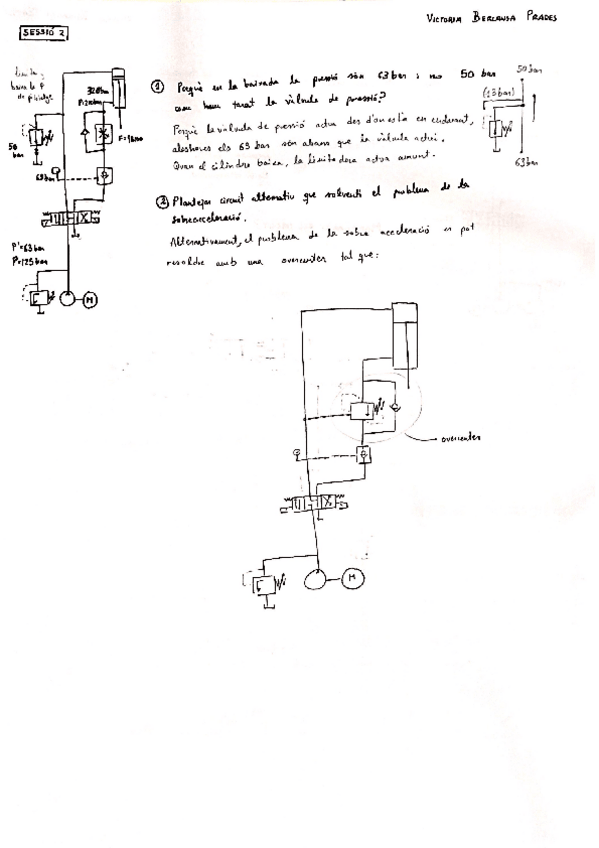 VICTORIA BERLANGA PRADES
SESSIÓ 2
baixa la P
de pilotatge
50
bar
63 bar
P'=63 bar
P=125 bar
M
① Perquè en la baixada la pressió són 63 bar i no 50 bar
com hem tarat la vàlvula de pressió?
Perquè la vàlvula de pressió actua des d'on està en endavant,
aleshores els 63 bar són abans que la vàlvula actuï.
Quan el cilindre baixa, la limitadora actua amunt.
50 bar
(13 bar)
63 bar
② Plantejar circuit alternatiu que solventi el problema de la
sobreacceleració.
Alternativament, el problema de la sobre acceleració es pot
resoldre amb una overcenter tal que:
overcenter
M